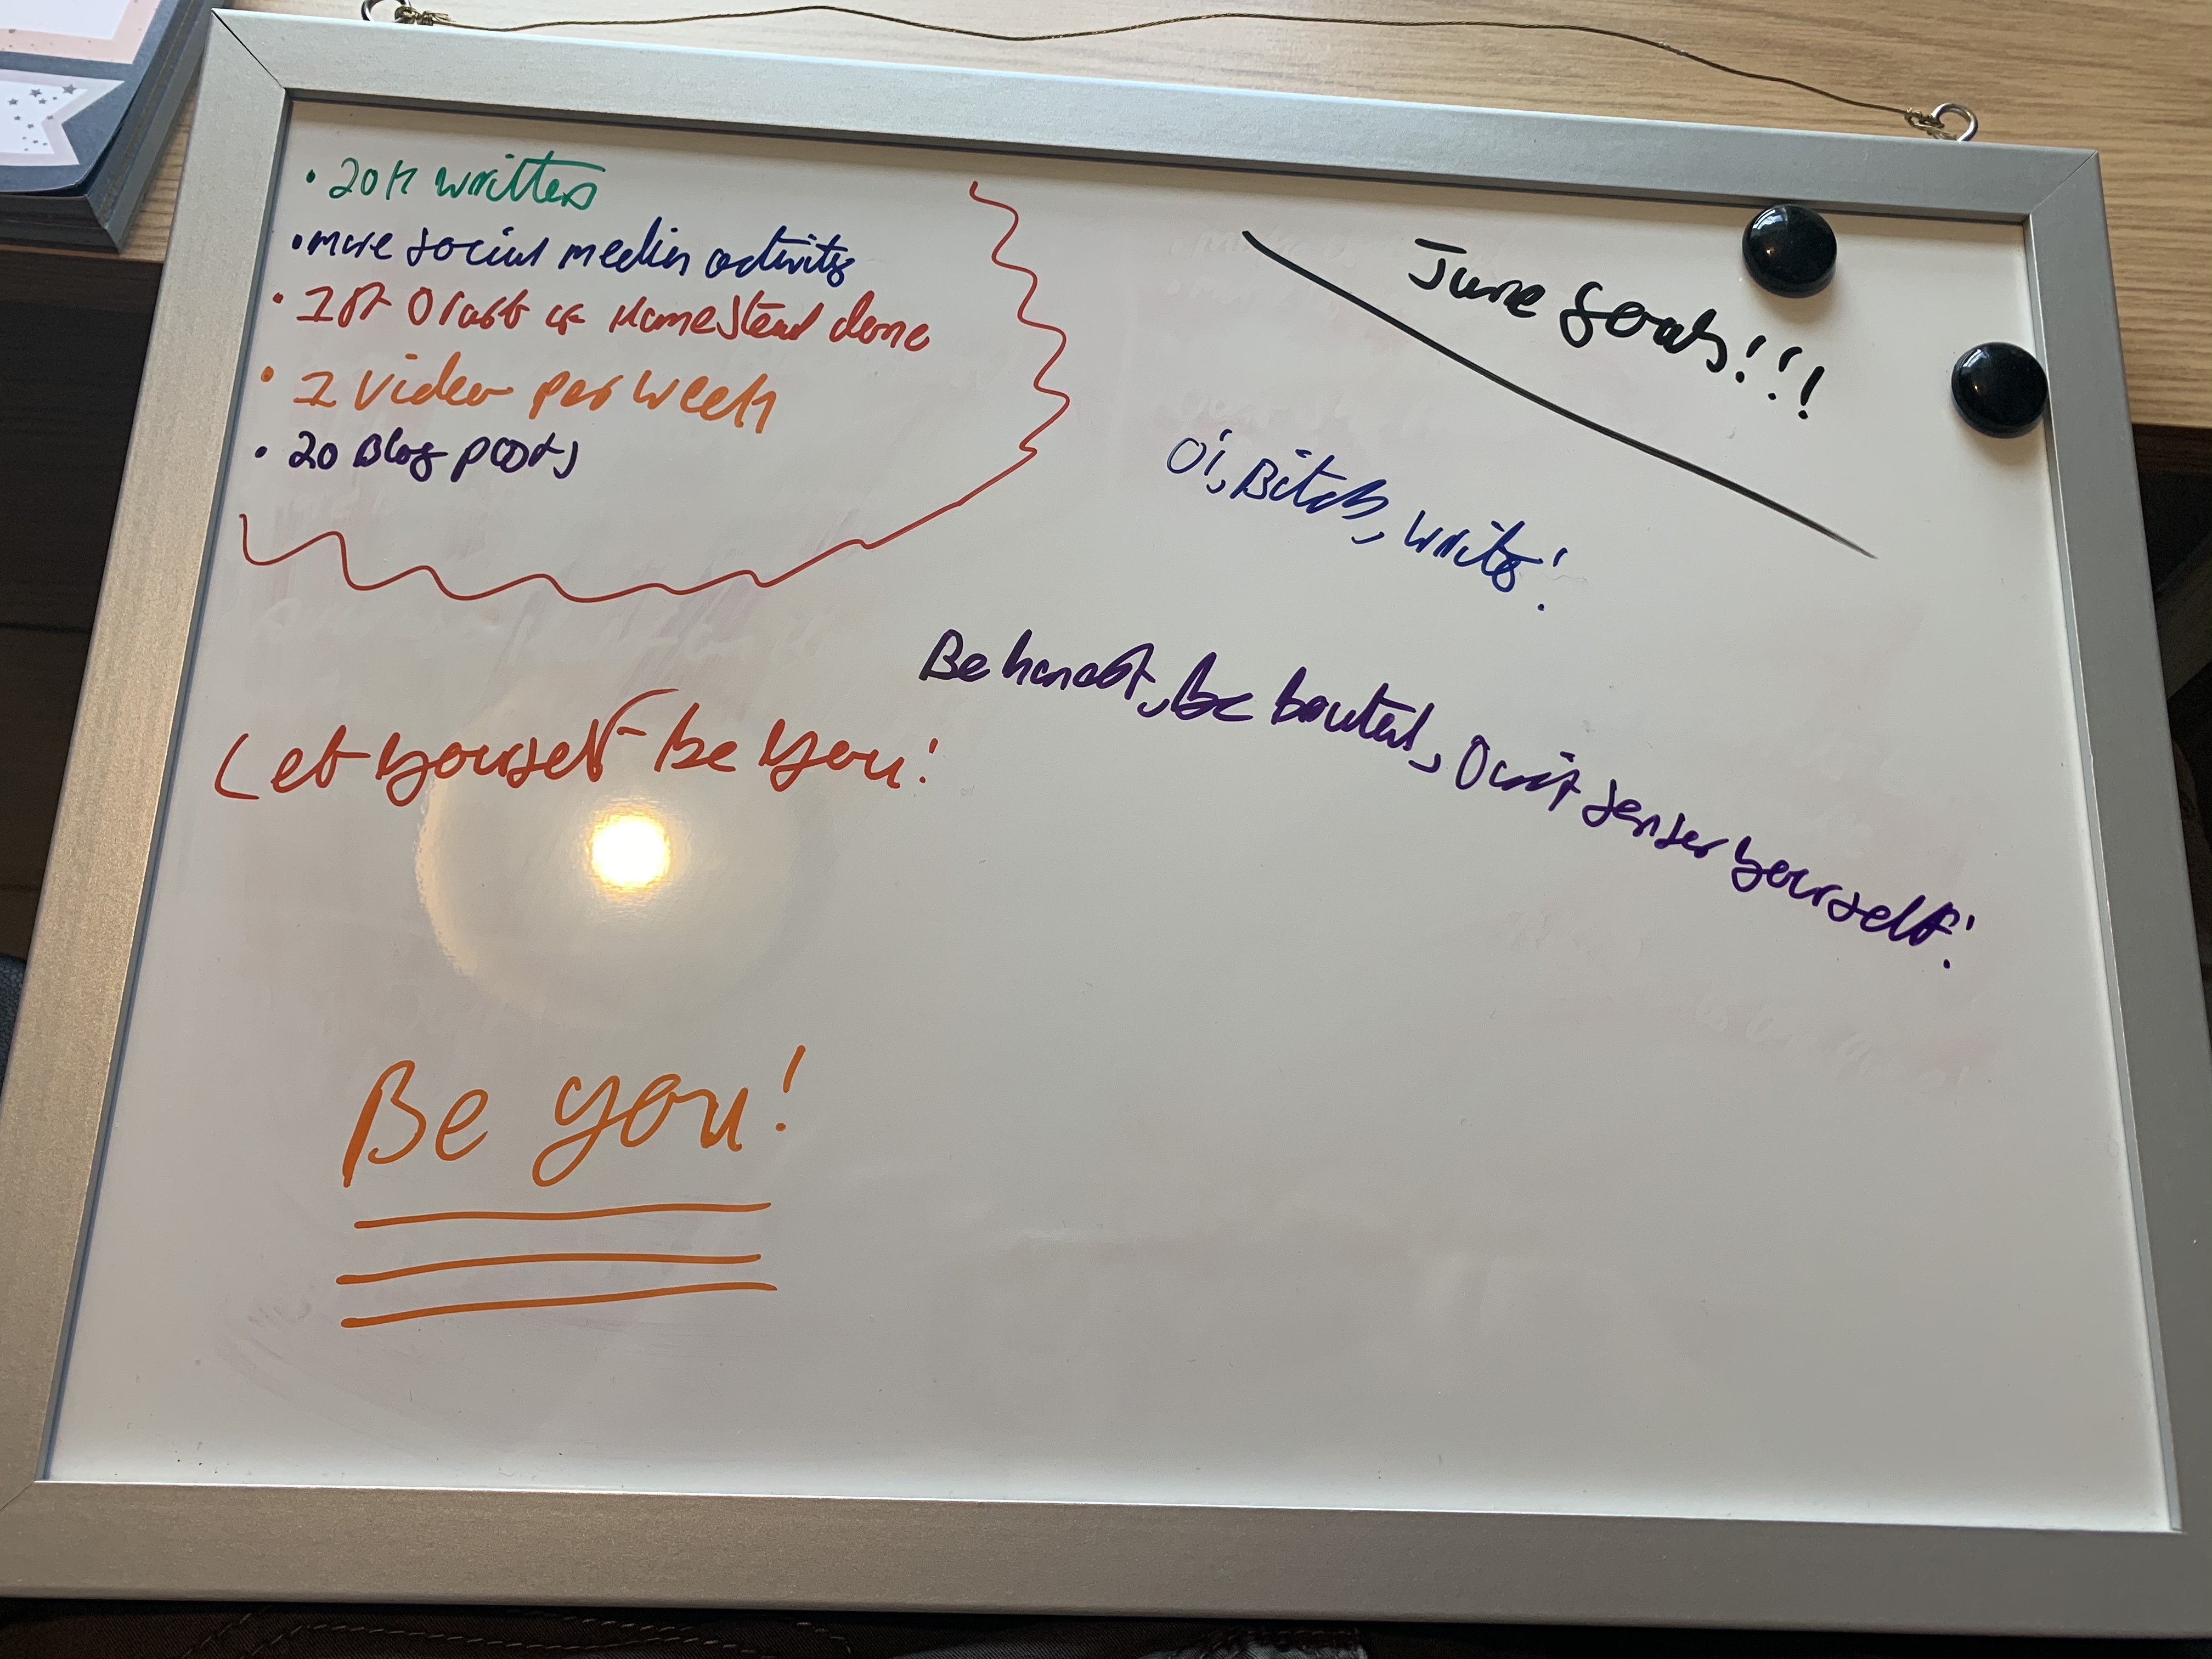 • 20K written
• more social media activity
• 1st Draft of Homestead done
• 1 video per week
• 20 Blog posts
June Goals!!!
Oi, Bitch, write!
Be honest, be brutal, Don't senser yourself!
Let yourself be you!
Be you!